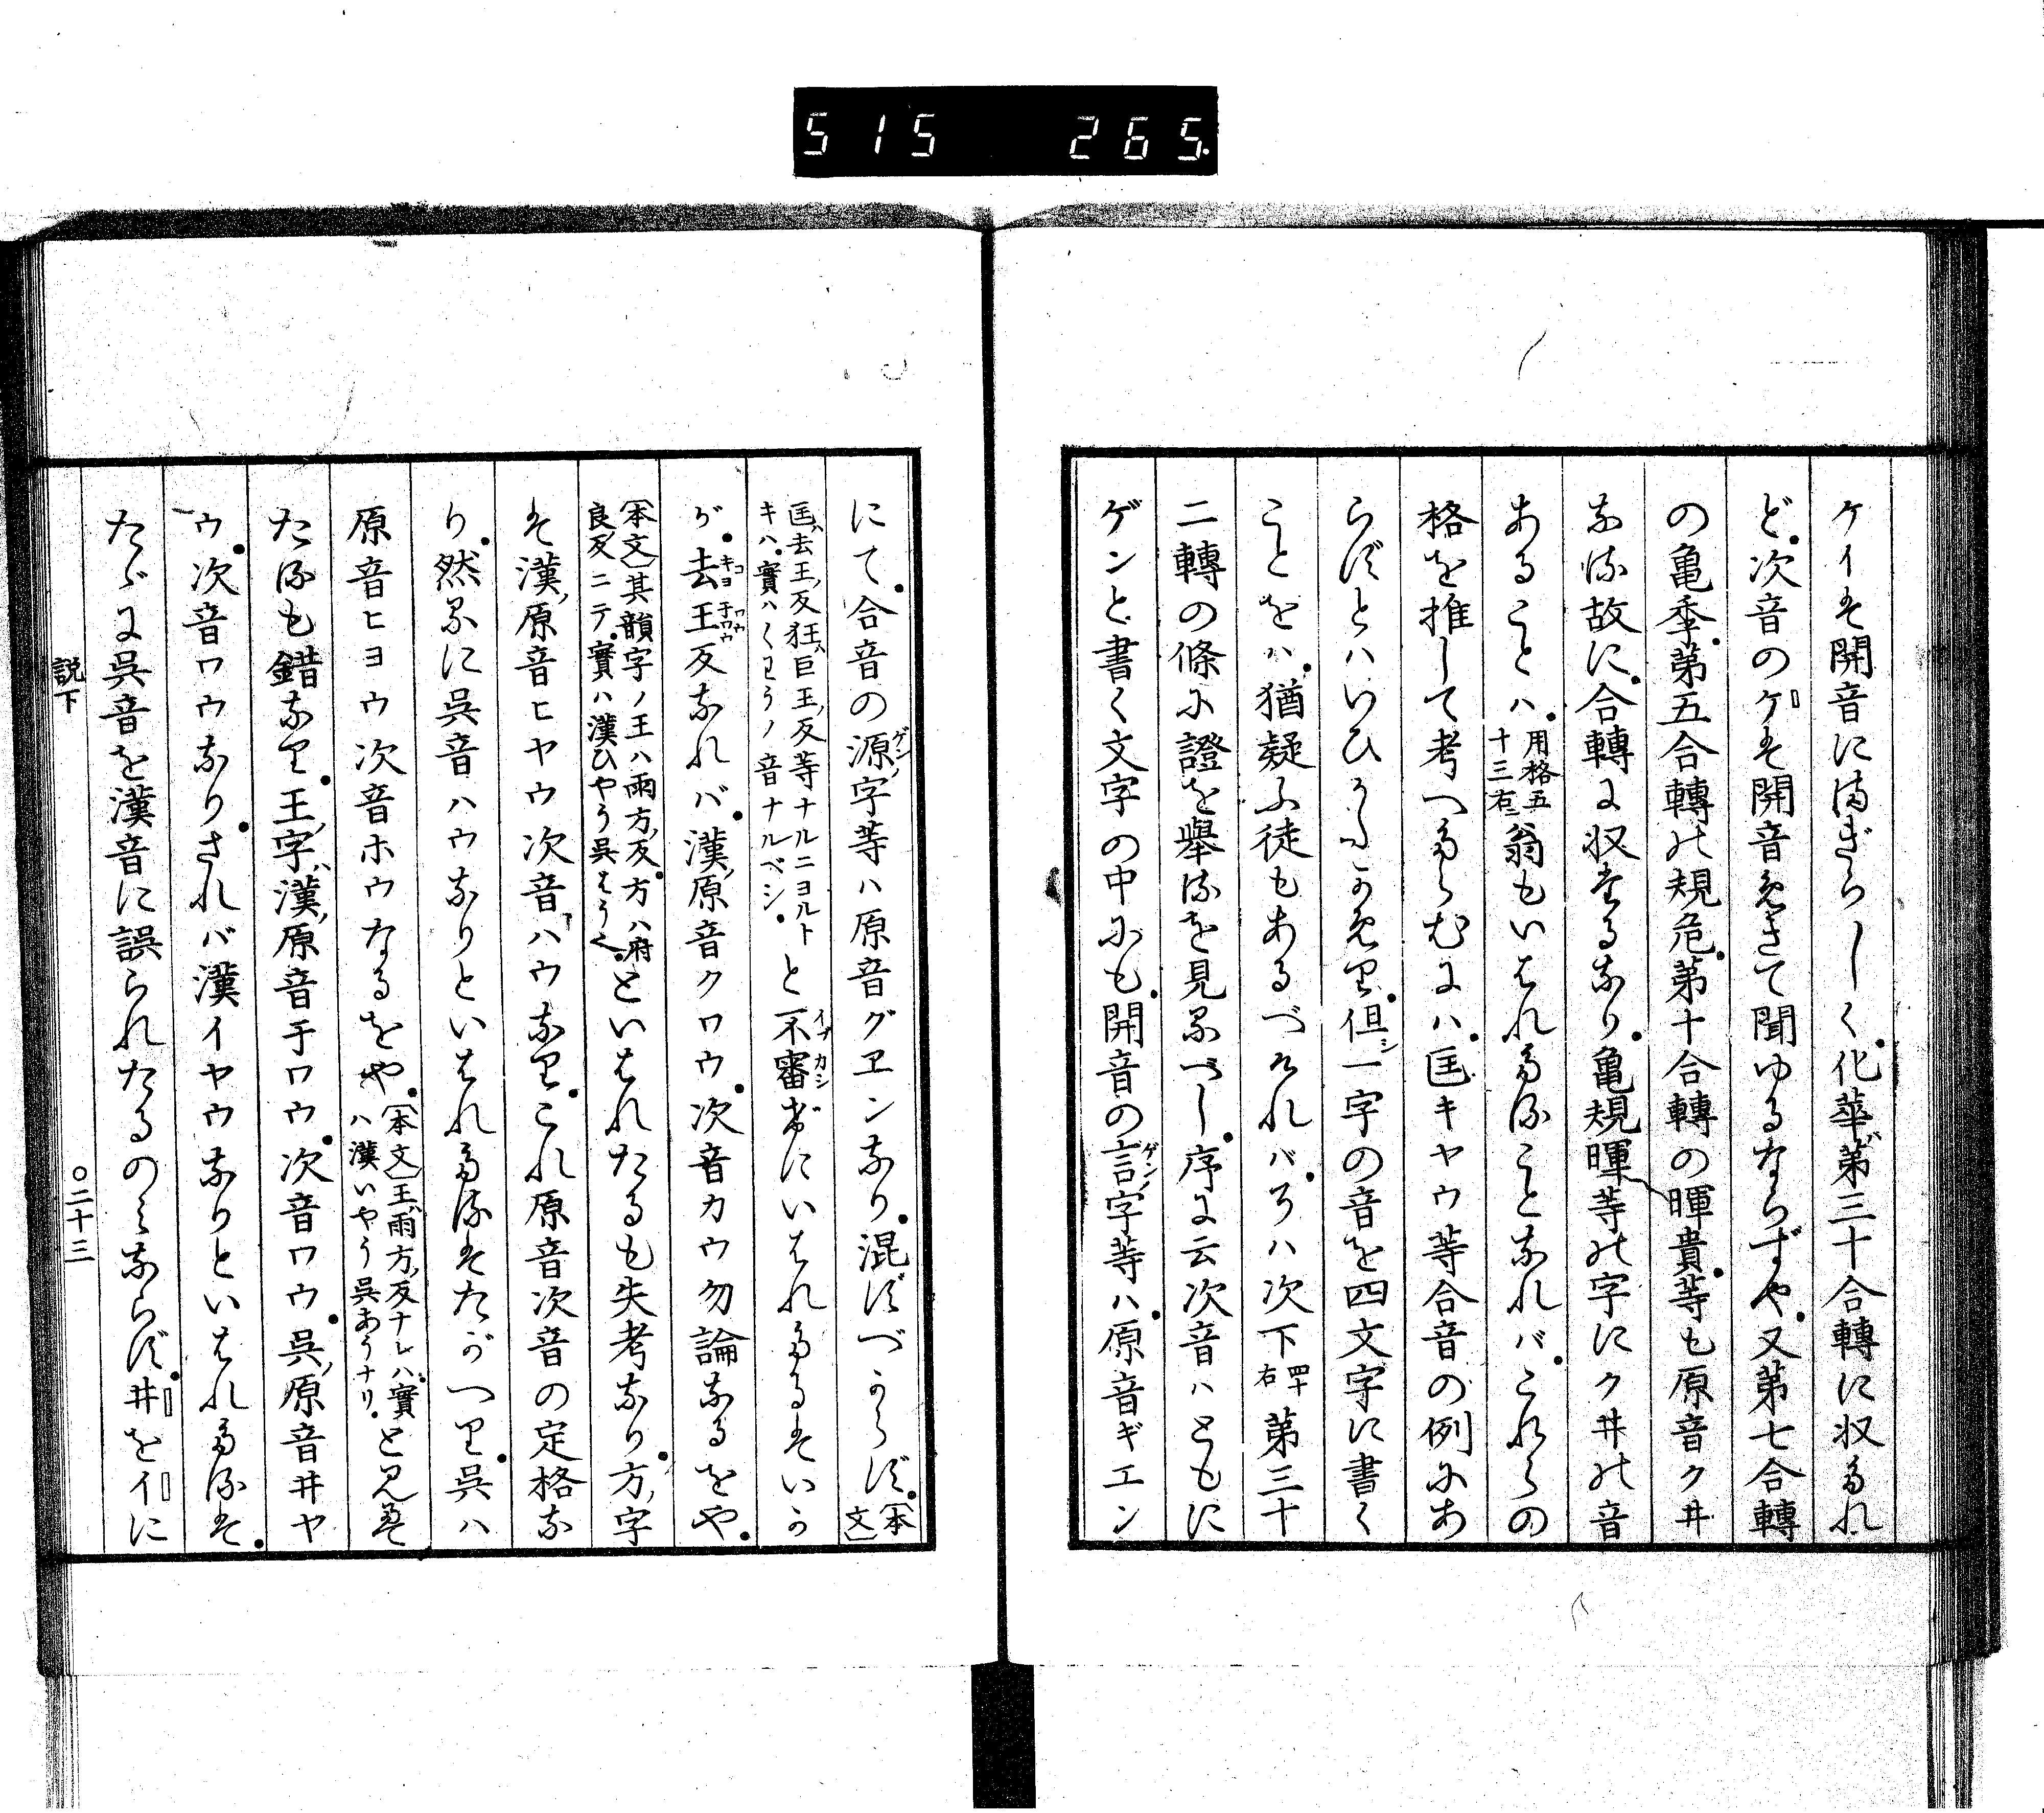 515 265
ケイは開音にまぎらはしく。化華ハ第三十合轉に収たれ
ど。次音のケは開音めきて聞ゆるならずや。又第七合轉
の亀季。第五合轉の規危。第十合轉の暉貴。等も原音クヰ
なる故に。合轉に収たるなり。亀規暉等の字にクヰの音
あることハ。用格五十三右翁もいはれたることなれバ。これらの
格を推して考へたらむにハ。匡キヤウ等合音の例にあ
らずとハいひがたかめり。但シ一字の音を四文字に書く
ことをハ。猶疑ふ徒もあるべけれバ。そハ次下四十右第三十
二轉の條に證を擧るを見るべし。序に云次音ハともに
ゲンと書く文字の中にも。開音の言ゲンノ字等ハ。原音ギエン
にて。合音の源ゲンノ字等ハ原音グヱンなり。混ずべからず。本文
匡ハ去王ノ反狂ハ巨王ノ反等ナルニヨルトキハ。實ハくわうノ音ナルベシ。と不審イブカシげにいはれたるはいか
が。去コキヨ王ワウヰワウ反なれバ。漢ノ原音クワウ。次音カウ勿論なるをや。
本文其韻字ノ王ハ雨方ノ反。方ハ府良ノ反ニテ。實ハ漢ひやう呉はうく。といはれたるも失考なり。方ノ字
は漢ノ原音ヒヤウ次音ハウなり。これ原音次音の定格な
り。然るに呉音ハウなりといはれたるはたがへり。呉ハ
原音ヒヨウ次音ホウなるをや。本文王ハ雨方ノ反ナレハ。實ハ漢いやう呉あうナリ。と見え
たるも錯なり。王ノ字ハ漢ノ原音ヰワウ。次音ワウ。呉ノ原音ヰヤ
ウ。次音ワウなり。されバ漢イヤウなりといはれたるは。
たゞに呉音を漢音に誤られたるのみならず。ヰをイに
説下
○二十三